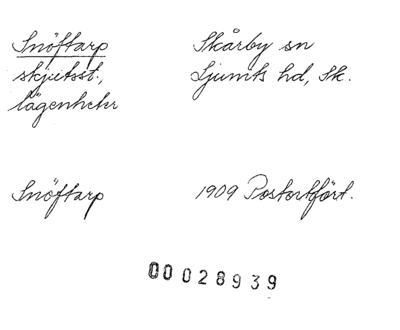 Snöftarp Skårby sn
skjutsst., Ljunits hd, Sk.
lägenheter
Snöftarp 1909 Postortfört.
00028939